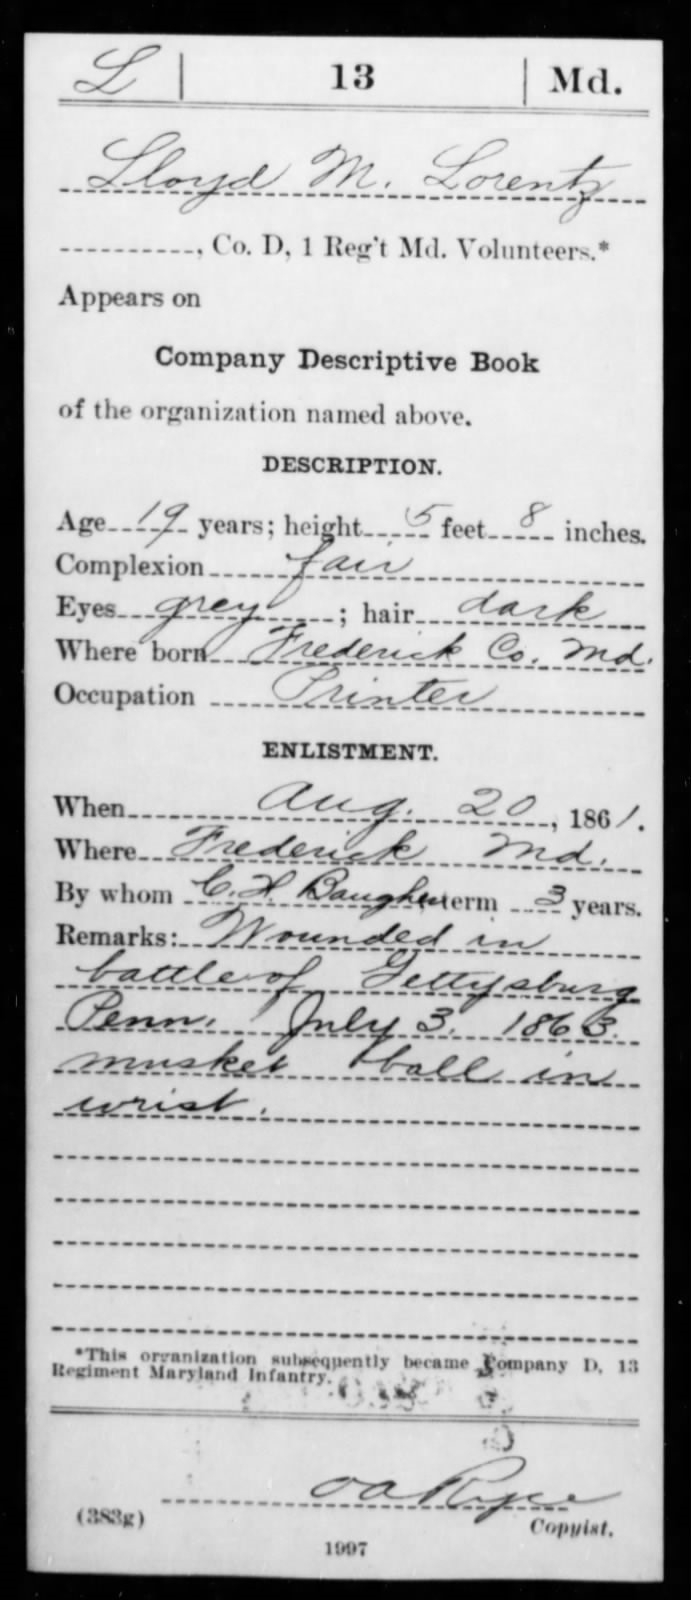 L | 13 | Md.
Lloyd M. Lorentz
, Co. D, 1 Reg't Md. Volunteers.*
Appears on
Company Descriptive Book
of the organization named above.
DESCRIPTION.
Age 19 years; height 5 feet 8 inches.
Complexion fair
Eyes grey ; hair dark
Where born Frederick Co. Md.
Occupation Printer
ENLISTMENT.
When Aug. 20, 1861.
Where Frederick Md.
By whom C. H. Baugher term 3 years.
Remarks: Wounded in
battle of Gettysburg
Penn. July 3. 1863.
musket ball in
wrist.
*This organization subsequently became Company D, 13
Regiment Maryland Infantry.
(383g)
Copyist.
1997